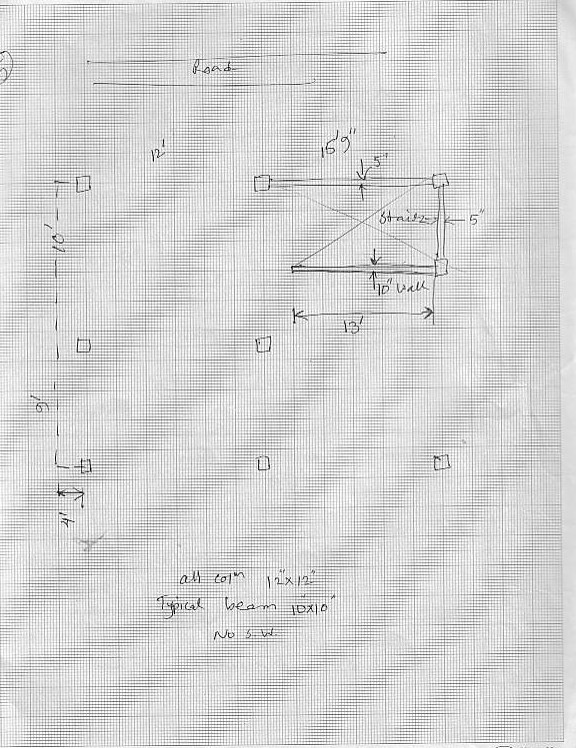 Road
12'
15'9"
5"
Stairs
5"
10'
10" wall
13'
9'
4'
all colm 12"x12"
Typical beam 10"x10"
No S.W.